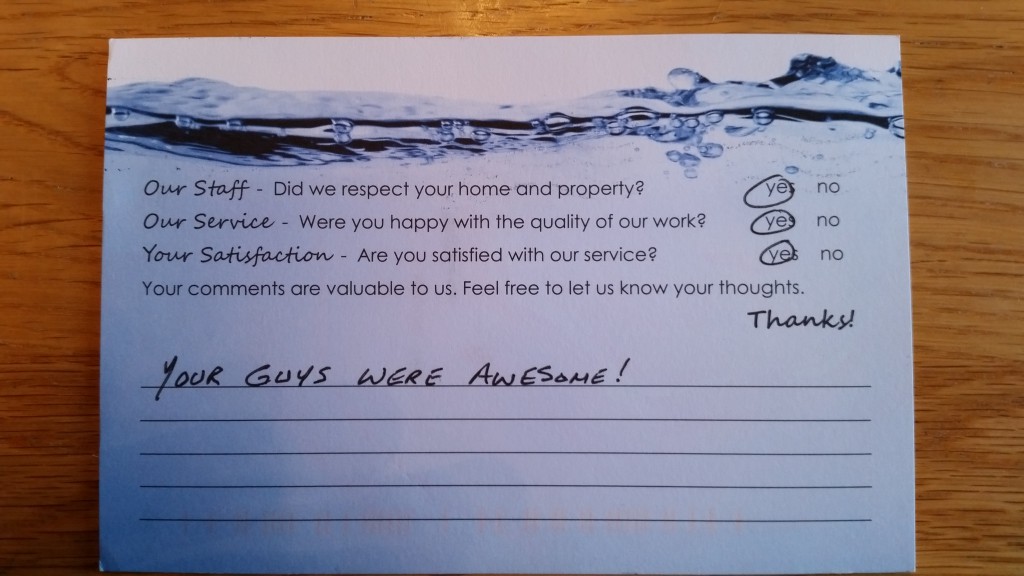 Our Staff - Did we respect your home and property? yes no
Our Service - Were you happy with the quality of our work? yes no
Your Satisfaction - Are you satisfied with our service? yes no
Your comments are valuable to us. Feel free to let us know your thoughts.
Thanks!
YOUR GUYS WERE AWESOME!